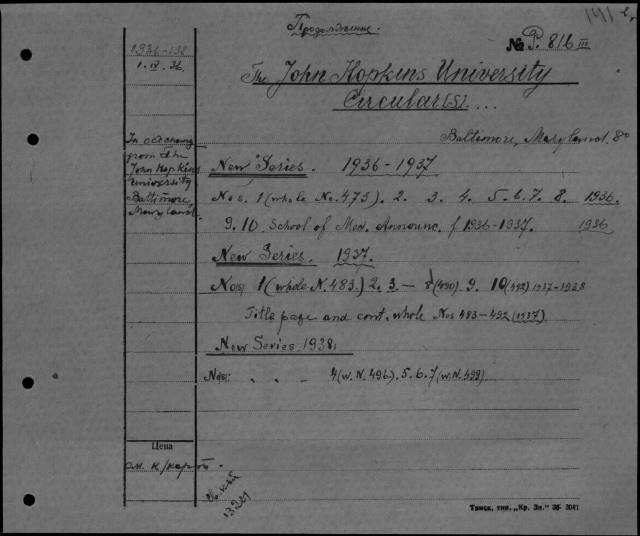 Продолжение.
№ P. 816 III
1936-138
1. IV. 36.
The John Hopkins University
Circular[s]...
Baltimore, Maryland. 8º
In exchang
from the
John Hopkins
University
Baltimore,
Maryland.
New Series. 1936-1937
Nos. 1 (whole No. 473). 2. 3. 4. 5. 6. 7. 8. 1936.
9. 10. School of Med. Announc. f 1936-1937. 1936
New Series. 1937.
Nos: 1 (whole N. 483.) 2. 3. — 8 (490) 9. 10 (492) 1937-1938
Title page and cont. whole Nos 483-492 (1937)
New Series. 1938.
Nos: . . . 4 (w. N. 496). 5. 6. 7 (w. N. 499)
Цена
см. к/карт.
Томск, тип. „Кр. Зн."